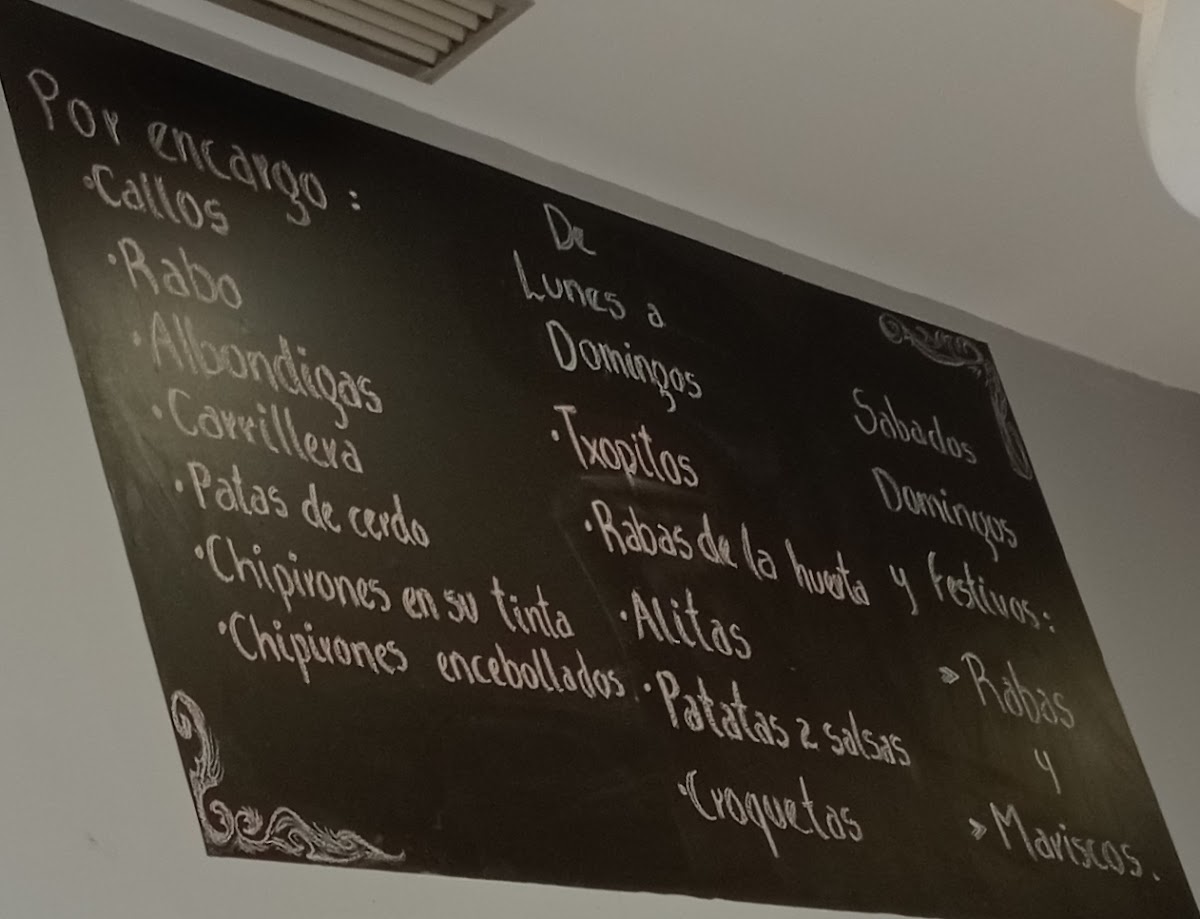 Por encargo:
·Callos
·Rabo
·Albondigas
·Carrillera
·Patas de cerdo
·Chipirones en su tinta
·Chipirones encebollados
De
Lunes a
Domingos
·Txopitos
·Rabas de la huerta
·Alitas
·Patatas 2 salsas
·Croquetas
Sabados
Domingos
y festivos:
» Rabas
y
» Mariscos.